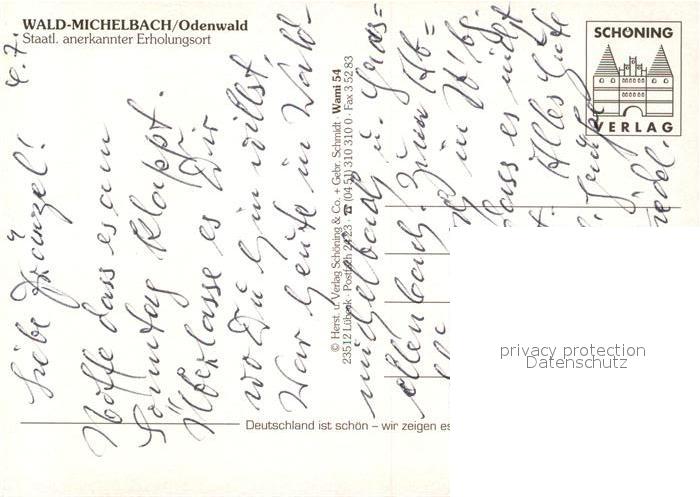 WALD-MICHELBACH/Odenwald
Staatl. anerkannter Erholungsort
SCHÖNING
VERLAG
© Herst. u. Verlag Schöning & Co. + Gebr. Schmidt · Wami 54
23512 Lübeck · Postfach 24 23 · ☎ (04 51) 310 310 0 · Fax 3 52 83
Deutschland ist schön – wir zeigen es
Liebe Fränzel!
Hoffe dass es am
Sonntag klappt.
Überlasse es Dir
wo Du hin willst.
War heute in Wald-
michelbach u. Gras=
ellenbach. Zum Ab=
in
dass es nicht
Alles Gute
privacy protection
Datenschutz